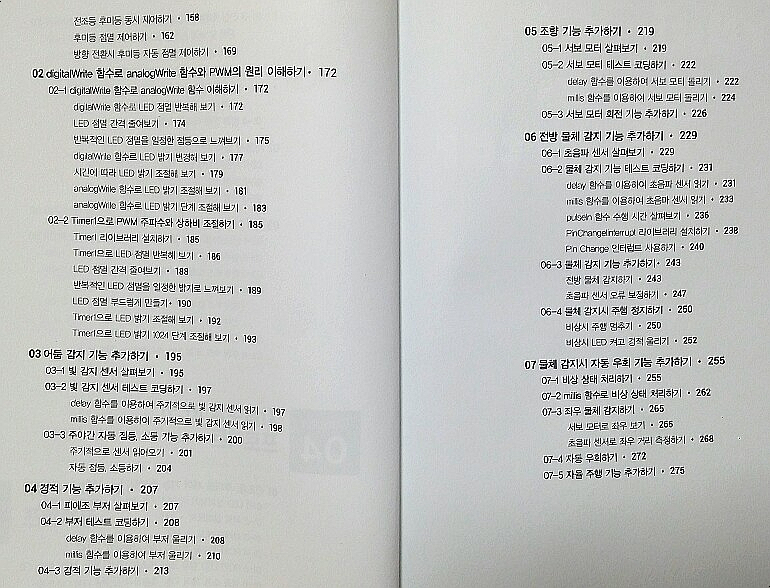 전조등 후미등 동시 제어하기 • 158
후미등 점멸 제어하기 • 162
방향 전환시 후미등 자동 점멸 제어하기 • 169
02 digitalWrite 함수로 analogWrite 함수와 PWM의 원리 이해하기 • 172
02-1 digitalWrite 함수로 analogWrite 함수 이해하기 • 172
digitalWrite 함수로 LED 점멸 반복해 보기 • 172
LED 점멸 간격 줄여보기 • 174
반복적인 LED 점멸을 일정한 점등으로 느껴보기 • 175
digitalWrite 함수로 LED 밝기 변경해 보기 • 177
시간에 따라 LED 밝기 조절해 보기 • 179
analogWrite 함수로 LED 밝기 조절해 보기 • 181
analogWrite 함수로 LED 밝기 단계 조절해 보기 • 183
02-2 Timer1으로 PWM 주파수와 상하비 조절하기 • 185
Timer1 라이브러리 설치하기 • 185
Timer1으로 LED 점멸 반복해 보기 • 186
LED 점멸 간격 줄여보기 • 188
반복적인 LED 점멸을 일정한 밝기로 느껴보기 • 189
LED 점멸 부드럽게 만들기 • 190
Timer1으로 LED 밝기 조절해 보기 • 192
Timer1으로 LED 밝기 1024 단계 조절해 보기 • 193
03 어둠 감지 기능 추가하기 • 195
03-1 빛 감지 센서 살펴보기 • 195
03-2 빛 감지 센서 테스트 코딩하기 • 197
delay 함수를 이용하여 주기적으로 빛 감지 센서 읽기 • 197
millis 함수를 이용하여 주기적으로 빛 감지 센서 읽기 • 198
03-3 주야간 자동 점등, 소등 기능 추가하기 • 200
주기적으로 센서 읽어오기 • 201
자동 점등, 소등하기 • 204
04 경적 기능 추가하기 • 207
04-1 피에조 부저 살펴보기 • 207
04-2 부저 테스트 코딩하기 • 208
delay 함수를 이용하여 부저 울리기 • 208
millis 함수를 이용하여 부저 울리기 • 210
04-3 경적 기능 추가하기 • 213
05 조향 기능 추가하기 • 219
05-1 서보 모터 살펴보기 • 219
05-2 서보 모터 테스트 코딩하기 • 222
delay 함수를 이용하여 서보 모터 돌리기 • 222
millis 함수를 이용하여 서보 모터 돌리기 • 224
05-3 서보 모터 회전 기능 추가하기 • 226
06 전방 물체 감지 기능 추가하기 • 229
06-1 초음파 센서 살펴보기 • 229
06-2 물체 감지 기능 테스트 코딩하기 • 231
delay 함수를 이용하여 초음파 센서 읽기 • 231
millis 함수를 이용하여 초음파 센서 읽기 • 233
pulseIn 함수 수행 시간 살펴보기 • 236
PinChangeInterrupt 라이브러리 설치하기 • 238
Pin Change 인터럽트 사용하기 • 240
06-3 물체 감지 기능 추가하기 • 243
전방 물체 감지하기 • 243
초음파 센서 오류 보정하기 • 247
06-4 물체 감지시 주행 정지하기 • 250
비상시 주행 멈추기 • 250
비상시 LED 켜고 경적 울리기 • 252
07 물체 감지시 자동 우회 기능 추가하기 • 255
07-1 비상 상태 처리하기 • 255
07-2 millis 함수로 비상 상태 처리하기 • 262
07-3 좌우 물체 감지하기 • 265
서보 모터로 좌우 보기 • 265
초음파 센서로 좌우 거리 측정하기 • 268
07-4 자동 우회하기 • 272
07-5 자율 주행 기능 추가하기 • 275